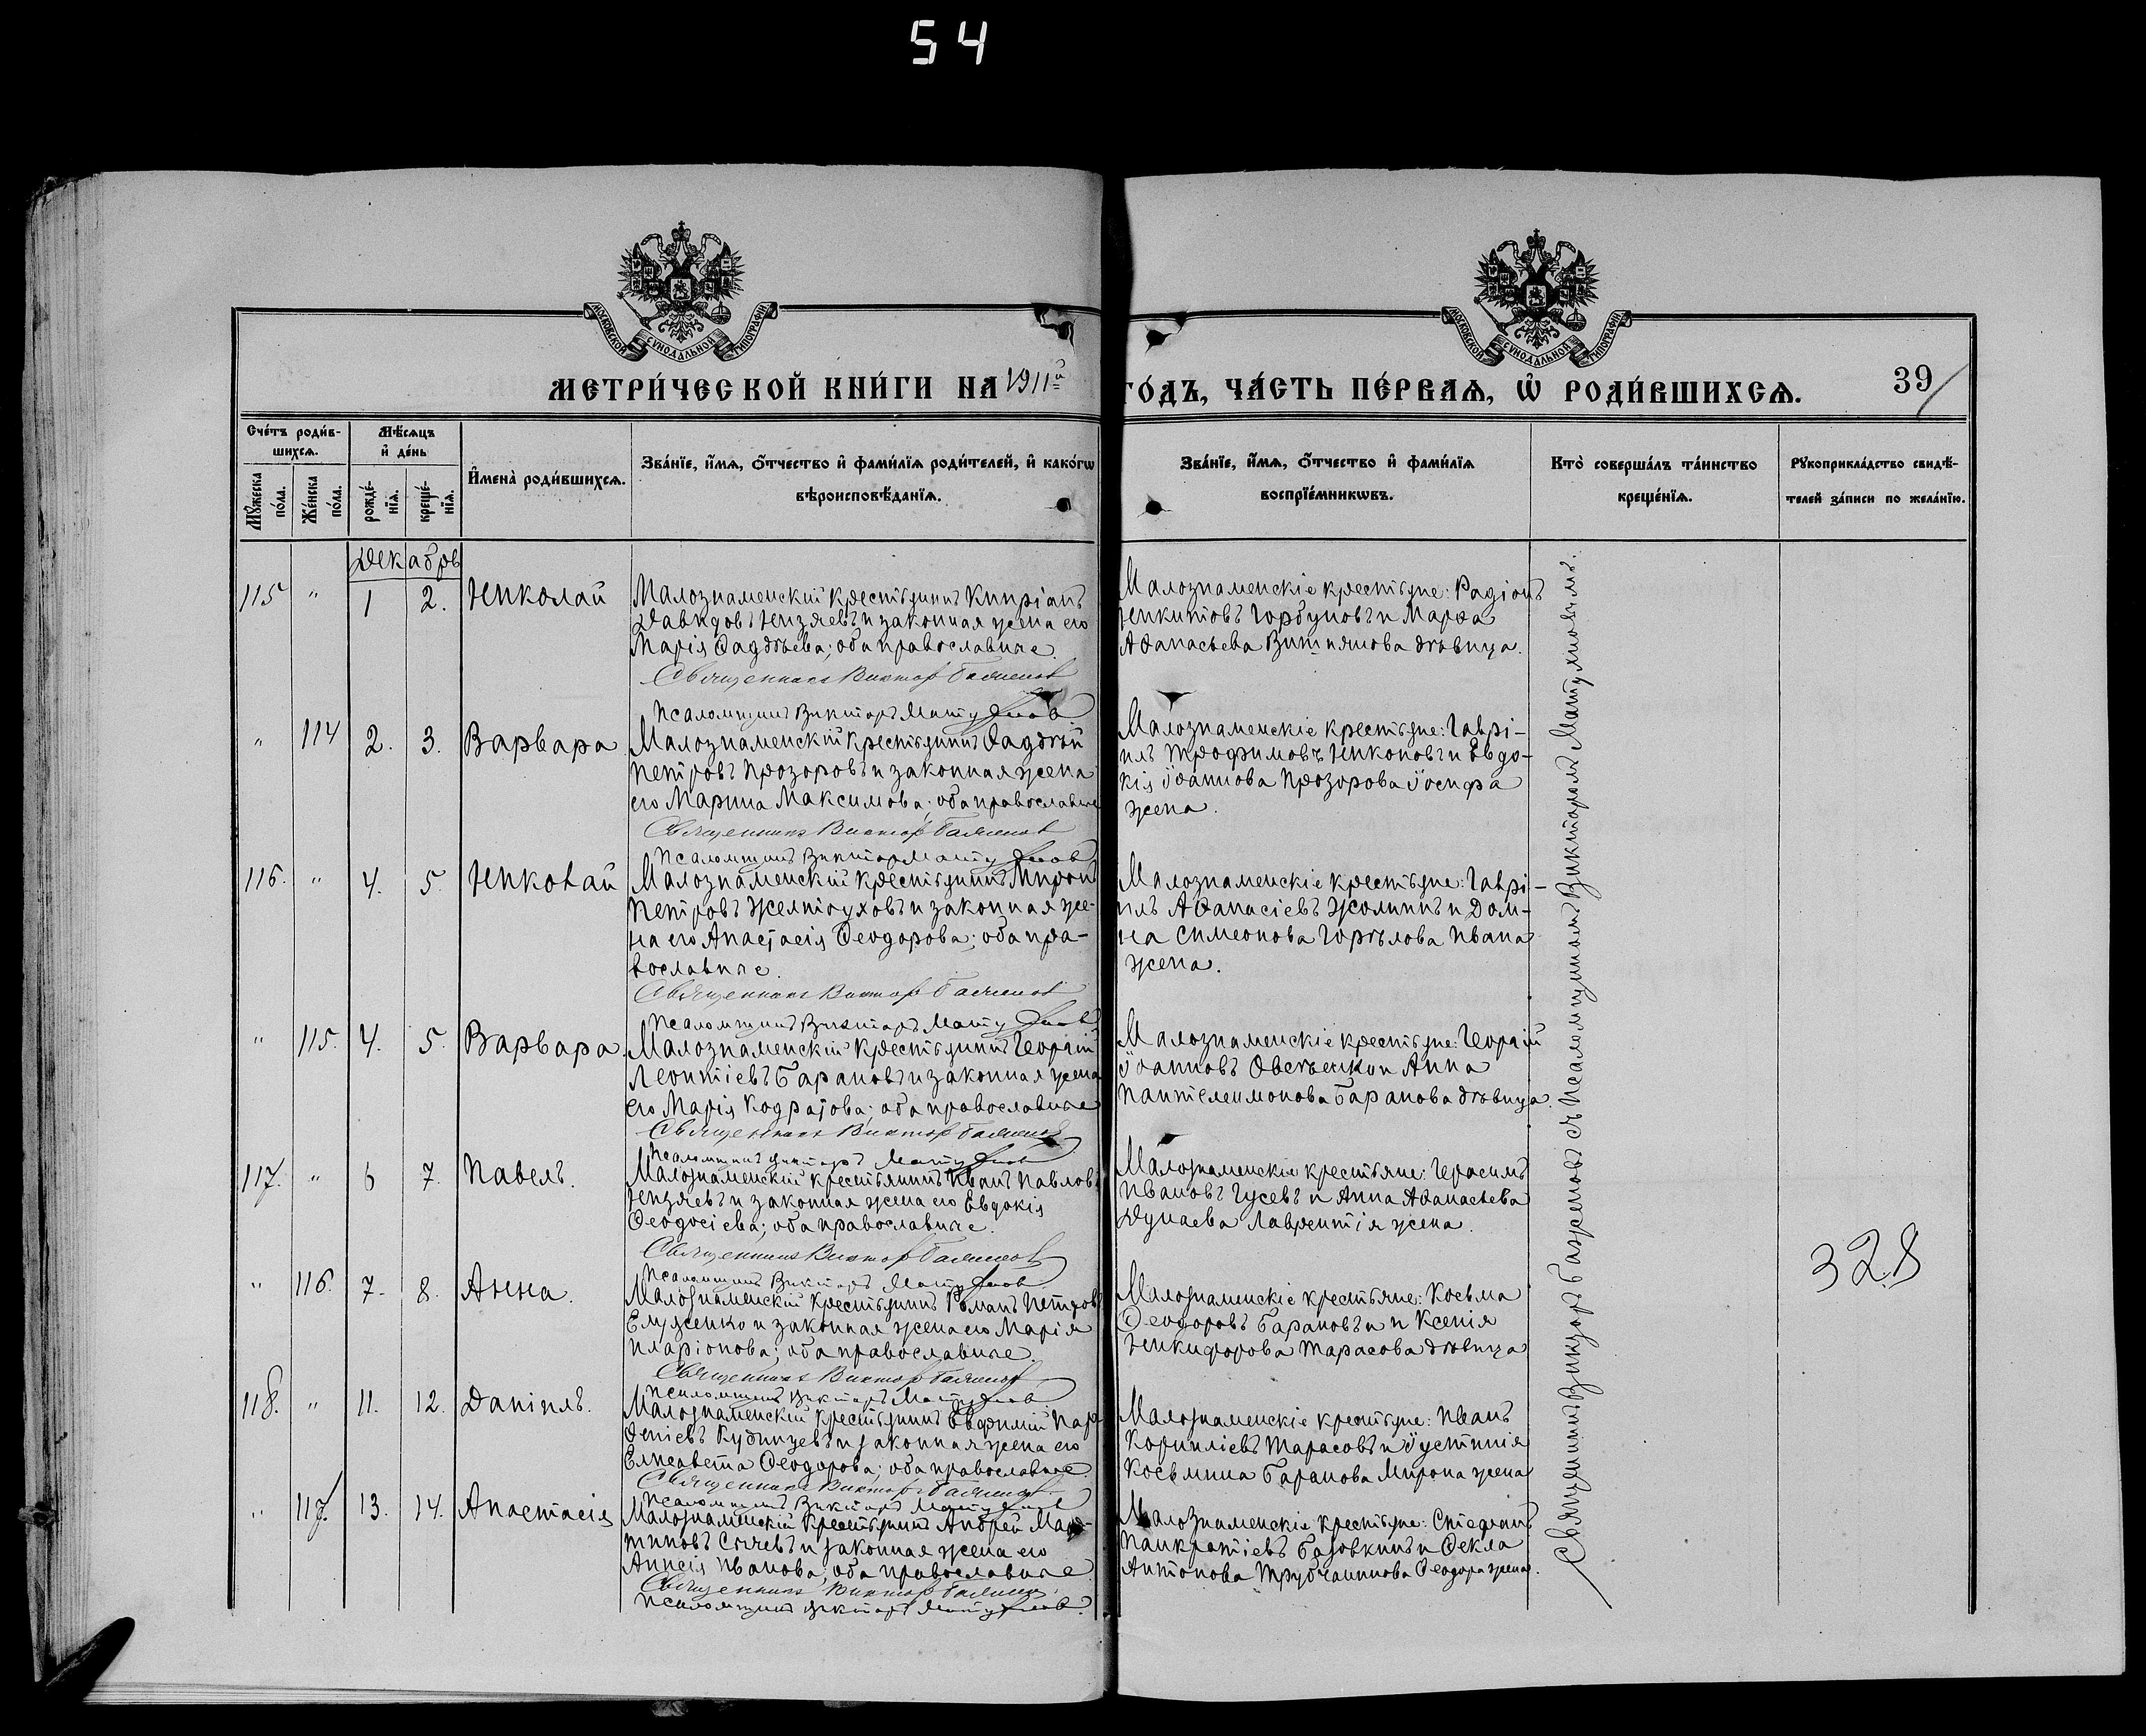 54
МОСКОВСКОЙ СѴНОДАЛЬНОЙ ТИПОГРАФІИ
МОСКОВСКОЙ СѴНОДАЛЬНОЙ ТИПОГРАФІИ
МЕТРИ́ЧЕСКОЙ КНИ́ГИ НА 1911й ГО́ДЪ, ЧА́СТЬ ПЕ́РВАѦ, Ѡ РОДИ́ВШИХСѦ.
39
Сче́тъ роди́в-
шихсѧ.
Мꙋ́жеска по́ла.
Же́нска по́ла.
Мѣ́сѧцъ
и де́нь
рожде́-нїѧ.
креще́-нїѧ.
И́мена̀ роди́вшихсѧ.
Зва́нїе, и́мѧ, ѻ́тчество и фами́лїѧ роди́телей, и како́гѡ
вѣроисповѣ́данїѧ.
Зва́нїе, и́мѧ, ѻ́тчество и фами́лїѧ
воспрїе́мникѡвъ.
Кто̀ соверша́лъ та́инство
креще́нїѧ.
Рꙋкоприкла́дство свидѣ́-
телей за́писи по жела́нїю.
Декабрь
115 " 1 2. Николай
Малознаменскій крестьянинъ Кипріанъ
Давидовъ Низяевъ и законная жена его
Марія Фаддѣева; оба православные.
Священникъ Виктор Баженов
Псаломщикъ Викторъ Матузков
Малознаменскіе крестьяне: Радіонъ
Никитовъ Горбуновъ и Марѳа
Аѳанасьева дѣвица.
" 114 2. 3. Варвара
Малознаменскій крестьянинъ Фаддѣй
Петровъ Прозоровъ и законная жена
его Марина Максимова; оба православные
Священникъ Виктор Баженов
Псаломщикъ Викторъ
Малознаменскіе крестьяне: Гаврі-
илъ Трофимовъ Никоновъ и Евдо-
кія Іоаннова Прозорова Іосифа
жена.
116. " 4. 5. Николай
Малознаменскій крестьянинъ Миронъ
Петровъ Желтоуховъ и законная же-
на его Анастасія Ѳеодорова; оба пра-
вославные.
Священникъ Виктор Баженов
Псаломщикъ Викторъ
Малознаменскіе крестьяне: Гаврі-
илъ Аѳанасіевъ Жолнинъ и Дом-
на Симеонова Горѣлова Ивана
жена.
" 115. 4. 5. Варвара
Малознаменскій крестьянинъ Георгій
Леонтіевъ Барановъ и законная жена
его Марія Кодратова; оба православные
Священникъ Виктор Баженов
Псаломщикъ Викторъ
Малознаменскіе крестьяне: Георгій
Іоанновъ Овсѣенко и Анна
Пантелеимонова Баранова дѣвица.
117. " 6 7. Павелъ.
Малознаменскій крестьянинъ Иванъ Павловъ
Низяевъ и законная жена его Евдокія
Ѳеодосіева; оба православные.
Священникъ Виктор Баженов
Псаломщикъ Викторъ
Малознаменскіе крестьяне: Герасимъ
Ивановъ Гусевъ и Анна Аѳанасьева
Дунаева Лаврентія жена.
" 116. 7. 8. Анна.
Малознаменскій крестьянинъ Романъ Петровъ
и законная жена его Марія
Иларіонова; оба православные.
Священникъ Виктор Баженов
Псаломщикъ Викторъ
Малознаменскіе крестьяне: Косьма
Ѳеодоровъ Барановъ и Ксенія
Никифорова Тарасова дѣвица
118. " 11. 12. Даніилъ.
Малознаменскій крестьянинъ Евфимій Пар-
ѳеніевъ Кубинцевъ и законная жена его
Елисавета Ѳеодорова; оба православные.
Священникъ Виктор Баженов
Псаломщикъ Викторъ
Малознаменскіе крестьяне: Иванъ
Корниліевъ Тарасовъ и Іустинія
Косьмина Баранова Мирона жена
" 117. 13. 14. Анастасія
Малознаменскій крестьянинъ Андрей Мар-
тиновъ Сычевъ и законная жена его
Аннсія Иванова; оба православные
Священникъ Виктор Баженов
Псаломщикъ Викторъ
Малознаменскіе крестьяне: Стефанъ
Панкратіевъ Базовкинъ и Ѳекла
Антонова Трубчанинова Ѳеодора жена.
Священникъ Викторъ Баженовъ съ Псаломщикомъ Викторомъ
328